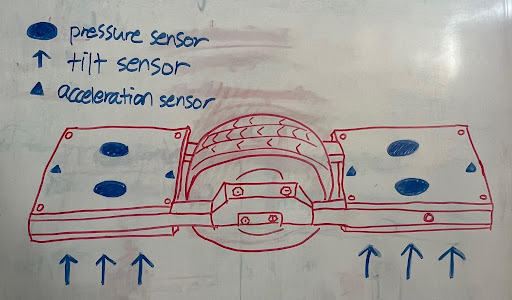 pressure sensor
tilt sensor
acceleration sensor